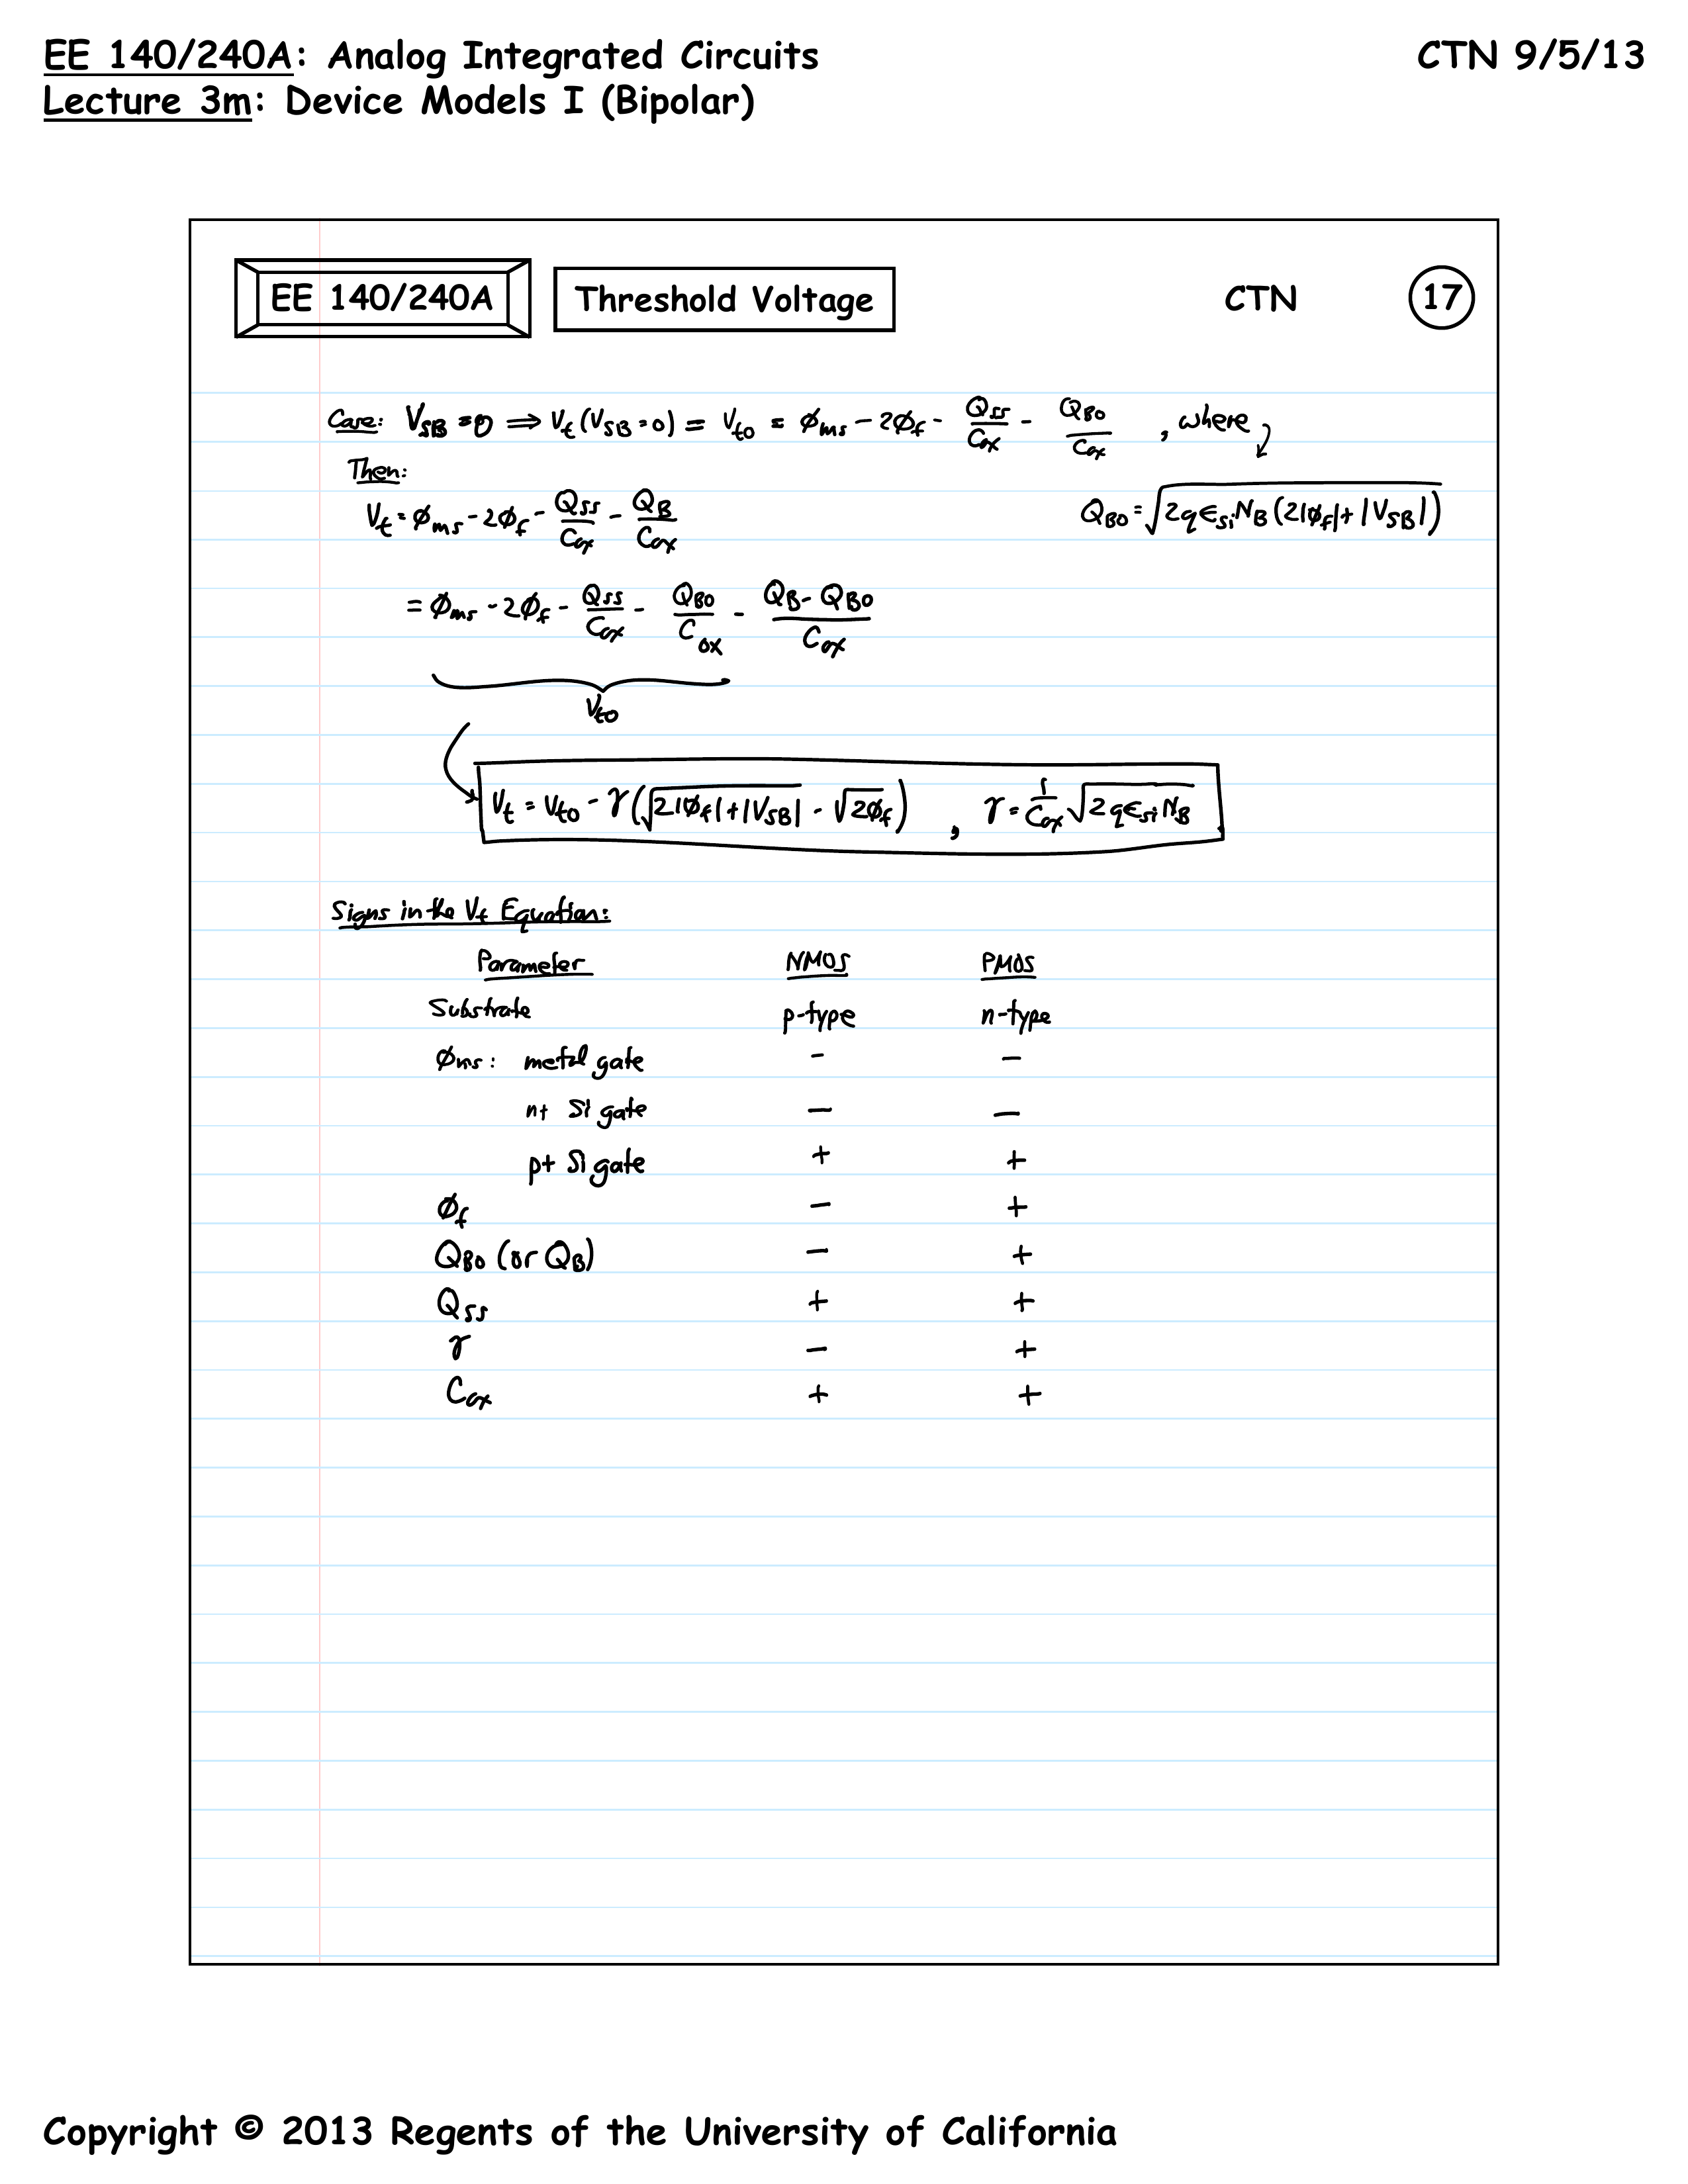 EE 140/240A: Analog Integrated Circuits CTN 9/5/13
Lecture 3m: Device Models I (Bipolar)
EE 140/240A Threshold Voltage CTN 17
Case: V_SB = 0 ⟹ V_t (V_SB = 0) = V_t0 = ϕ_ms - 2ϕ_f - Q_ss/C_ox - Q_B0/C_ox , where
Then:
V_t = ϕ_ms - 2ϕ_f - Q_ss/C_ox - Q_B/C_ox
Q_B0 = √(2qϵ_si N_B (2|ϕ_f| + |V_SB|))
= ϕ_ms - 2ϕ_f - Q_ss/C_ox - Q_B0/C_ox - (Q_B - Q_B0)/C_ox
V_t0
V_t = V_t0 - γ(√(2|ϕ_f| + |V_SB|) - √(2ϕ_f)) , γ = 1/C_ox √(2qϵ_si N_B)
Signs in the V_t Equation:
Parameter NMOS PMOS
Substrate p-type n-type
ϕ_ms: metal gate - -
n+ Si gate - -
p+ Si gate + +
ϕ_f - +
Q_B0 (or Q_B) - +
Q_ss + +
γ - +
C_ox + +
Copyright © 2013 Regents of the University of California